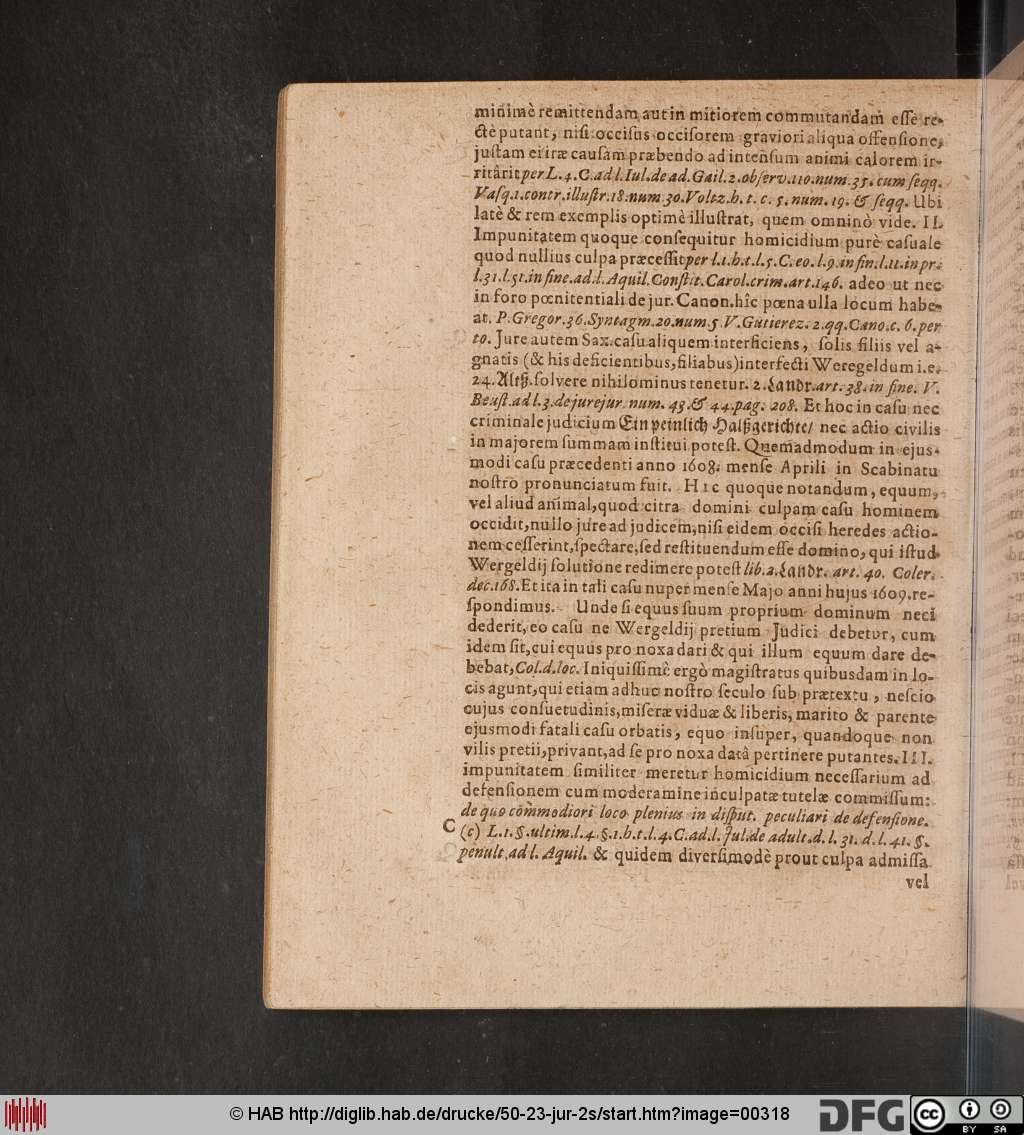 minimè remittendam aut in mitiorem commutandam eſſe re-
ctè putant, niſi occiſus occiſorem graviori aliqua offenſione,
juſtam ei iræ cauſam præbendo ad intenſum animi calorem ir-
ritârit per L. 4. C. ad l. Iul. de ad. Gail. 2. obſerv. 110. num. 35. cum ſeqq.
Vaſq. 1. contr. illuſtr. 18. num. 30. Voltz. h. t. c. 5. num. 19. & ſeqq. Ubi
latè & rem exemplis optimè illuſtrat, quem omninò vide. II.
Impunitatem quoque conſequitur homicidium purè caſuale
quod nullius culpa præceſſit per l. 1. h. t. l. 5. C. eo. l. 9. in fin. l. 11. in pr.
l. 31. l. 51. in fine. ad. l. Aquil. Conſtit. Carol. crim. art. 146. adeo ut nec
in foro pœnitentiali de jur. Canon. hîc pœna ulla locum habe-
at. P. Gregor. 36. Syntagm. 20. num. 5 V. Gutierez. 2. qq. Cano. c. 6. per
to. Jure autem Sax. caſu aliquem interficiens, ſolis filiis vel a-
gnatis (& his deficientibus, filiabus) interfecti Weregeldum i.e.
24. Altß. ſolvere nihilominus tenetur. 2. Landr. art. 38. in fine. V.
Beuſt. ad l. 3. de jurejur. num. 43. & 44. pag. 208. Et hoc in caſu nec
criminale judicium Ein peinlich Halßgerichte/ nec actio civilis
in majorem ſummam inſtitui poteſt. Quemadmodum in ejus-
modi caſu præcedenti anno 1608. menſe Aprili in Scabinatu
noſtro pronunciatum fuit. HIC quoque notandum, equum,
vel aliud animal, quod citra domini culpam caſu hominem
occidit, nullo jure ad judicem, niſi eidem occiſi heredes actio-
nem ceſſerint, ſpectare, ſed reſtituendum eſſe domino, qui iſtud
Wergeldij ſolutione redimere poteſt lib. 2. Landr. art. 40. Coler.
dec. 168. Et ita in tali caſu nuper menſe Majo anni hujus 1609. re-
ſpondimus. Unde ſi equus ſuum proprium dominum neci
dederit, eo caſu ne Wergeldij pretium Judici debetur, cum
idem ſit, cui equus pro noxa dari & qui illum equum dare de-
bebat, Col. d. loc. Iniquiſſimè ergò magiſtratus quibusdam in lo-
cis agunt, qui etiam adhuc noſtro ſeculo ſub prætextu, neſcio
cujus conſuetudinis, miſeræ viduæ & liberis, marito & parente
ejusmodi fatali caſu orbatis, equo inſuper, quandoque non
vilis pretii, privant, ad ſe pro noxa datâ pertinere putantes. III.
impunitatem ſimiliter meretur homicidium neceſſarium ad
defenſionem cum moderamine inculpatæ tutelæ commiſſum:
de quo commodiori loco plenius in diſput. peculiari de defenſione.
C (c) L. 1. §. ultim. l. 4. §. 1. h. t. l. 4. C. ad. l. Jul. de adult. d. l. 31. d. l. 41. §.
penult. ad l. Aquil. & quidem diverſimodè prout culpa admiſſa
vel
© HAB http://diglib.hab.de/drucke/50-23-jur-2s/start.htm?image=00318
DFG
cc BY SA